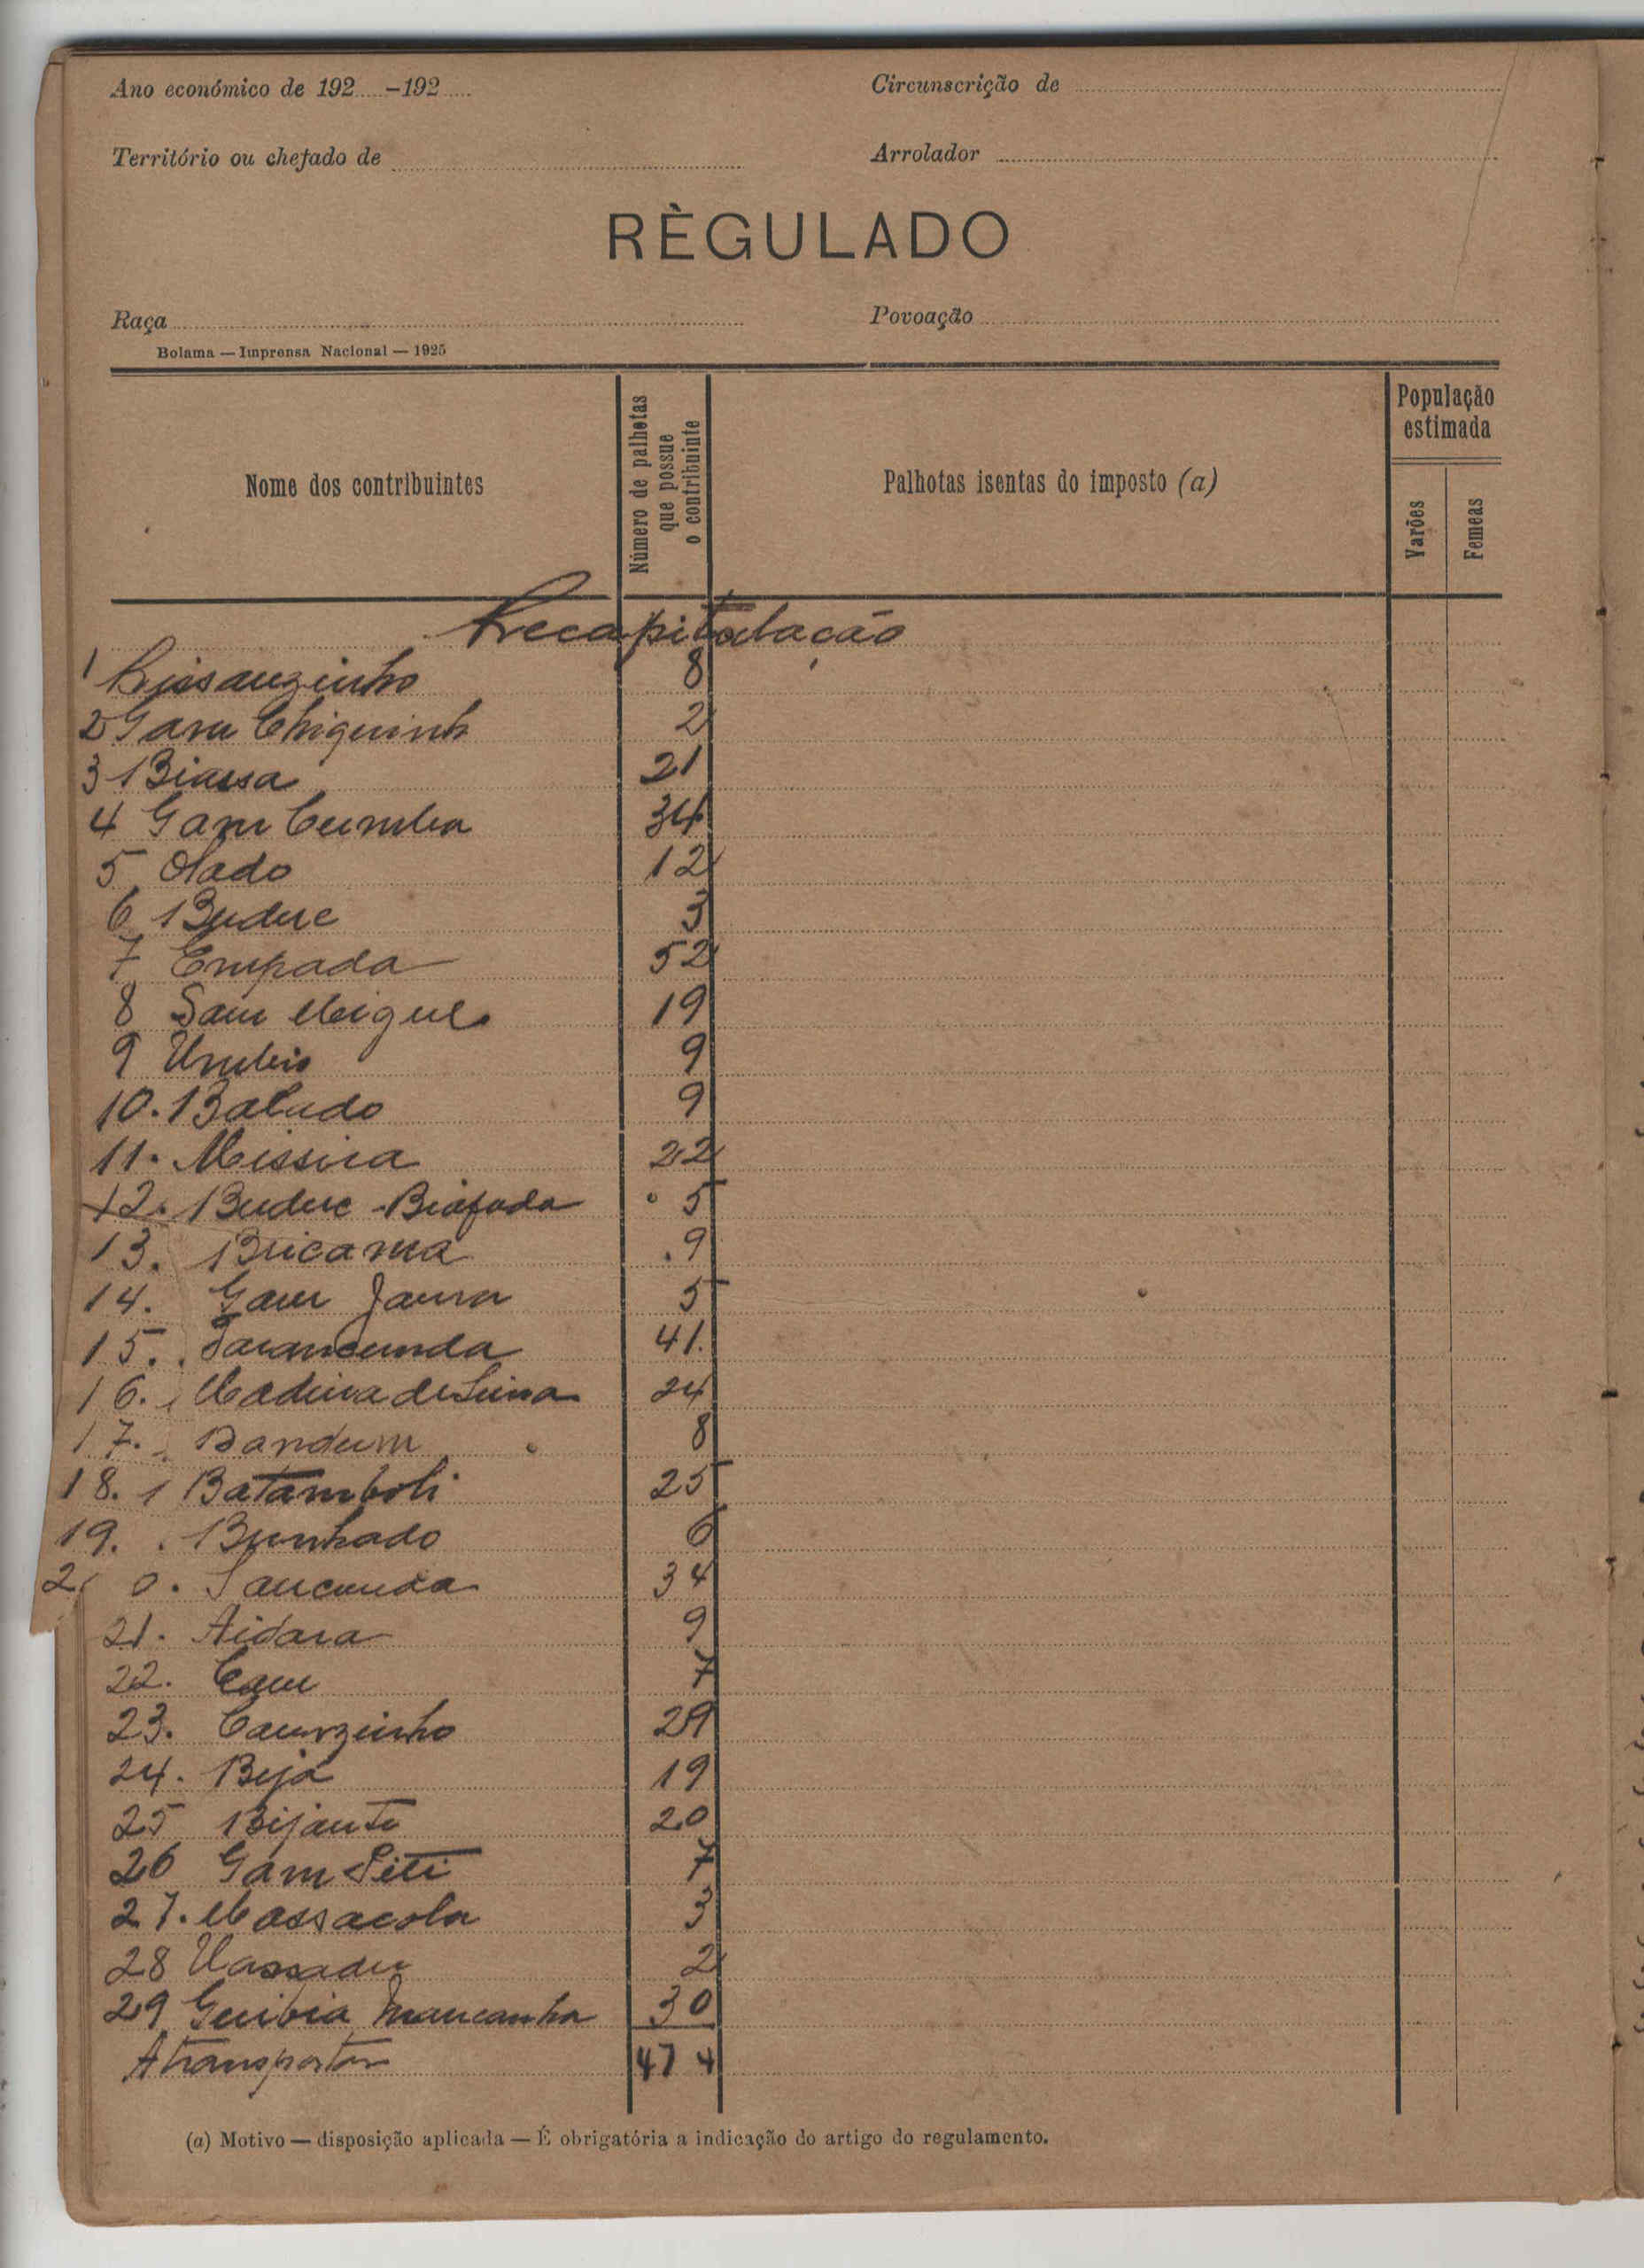 Ano económico de 192.....-192.....
Circunscrição de
Território ou chefado de
Arrolador
RÈGULADO
Raça
Povoação
Bolama — Imprensa Nacional — 1925
Nome dos contribuintes
Número de palhotas que possue o contribuinte
Palhotas isentas do imposto (a)
População estimada
Varões
Femeas
Recapitulação
1 Bissauzinho 8
2 Gam Chiquinh 2
3 Biassa 21
4 Gam Cumba 34
5 Olado 12
6 Buduc 3
7 Empada 52
8 Sam Miguel 19
9 9
10. Batudo 9
11. Missira 22
12. Buduc Biafada 5
13. Bricama 9
14. Gam Jaura 5
15. Farancunda 41
16. Madina de Lima 24
17. Bandum 8
18. Batamboli 25
19. Bunhado 6
20. Saucunda 34
21. Aidara 9
22. Cam 7
23. Caurzinho 29
24. Beja 19
25 Bijante 20
26 Gam Siti 7
27. Massacola 3
28 Uassadu 2
29 Guibia Mancanha 30
A transportar 474
(a) Motivo — disposição aplicada — É obrigatória a indicação do artigo do regulamento.